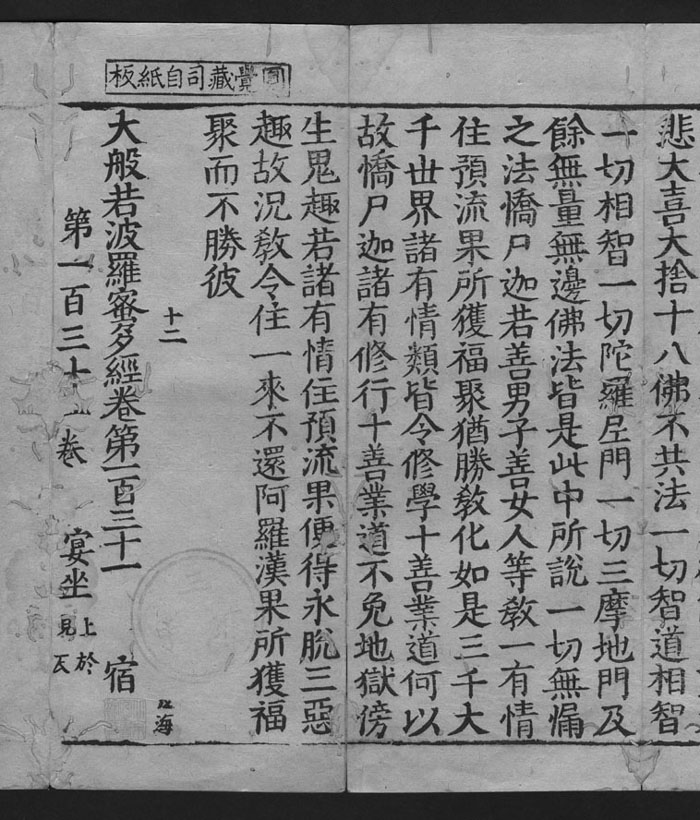 悲大喜大捨十八佛不共法一切智道相智
一切相智一切陀羅尼門一切三摩地門及
餘無量無邊佛法皆是此中所說一切無漏
之法憍尸迦若善男子善女人等教一有情
住預流果所獲福聚猶勝教化如是三千大
千世界諸有情類皆令修學十善業道何以
故憍尸迦諸有修行十善業道不免地獄傍
生鬼趣若諸有情住預流果便得永脫三惡
趣故況教令住一來不還阿羅漢果所獲福
聚而不勝彼
十二
大般若波羅蜜多經卷第一百三十一
宿
海
第一百三十一卷
宴坐
上於
見瓦
圓覺藏司自紙板